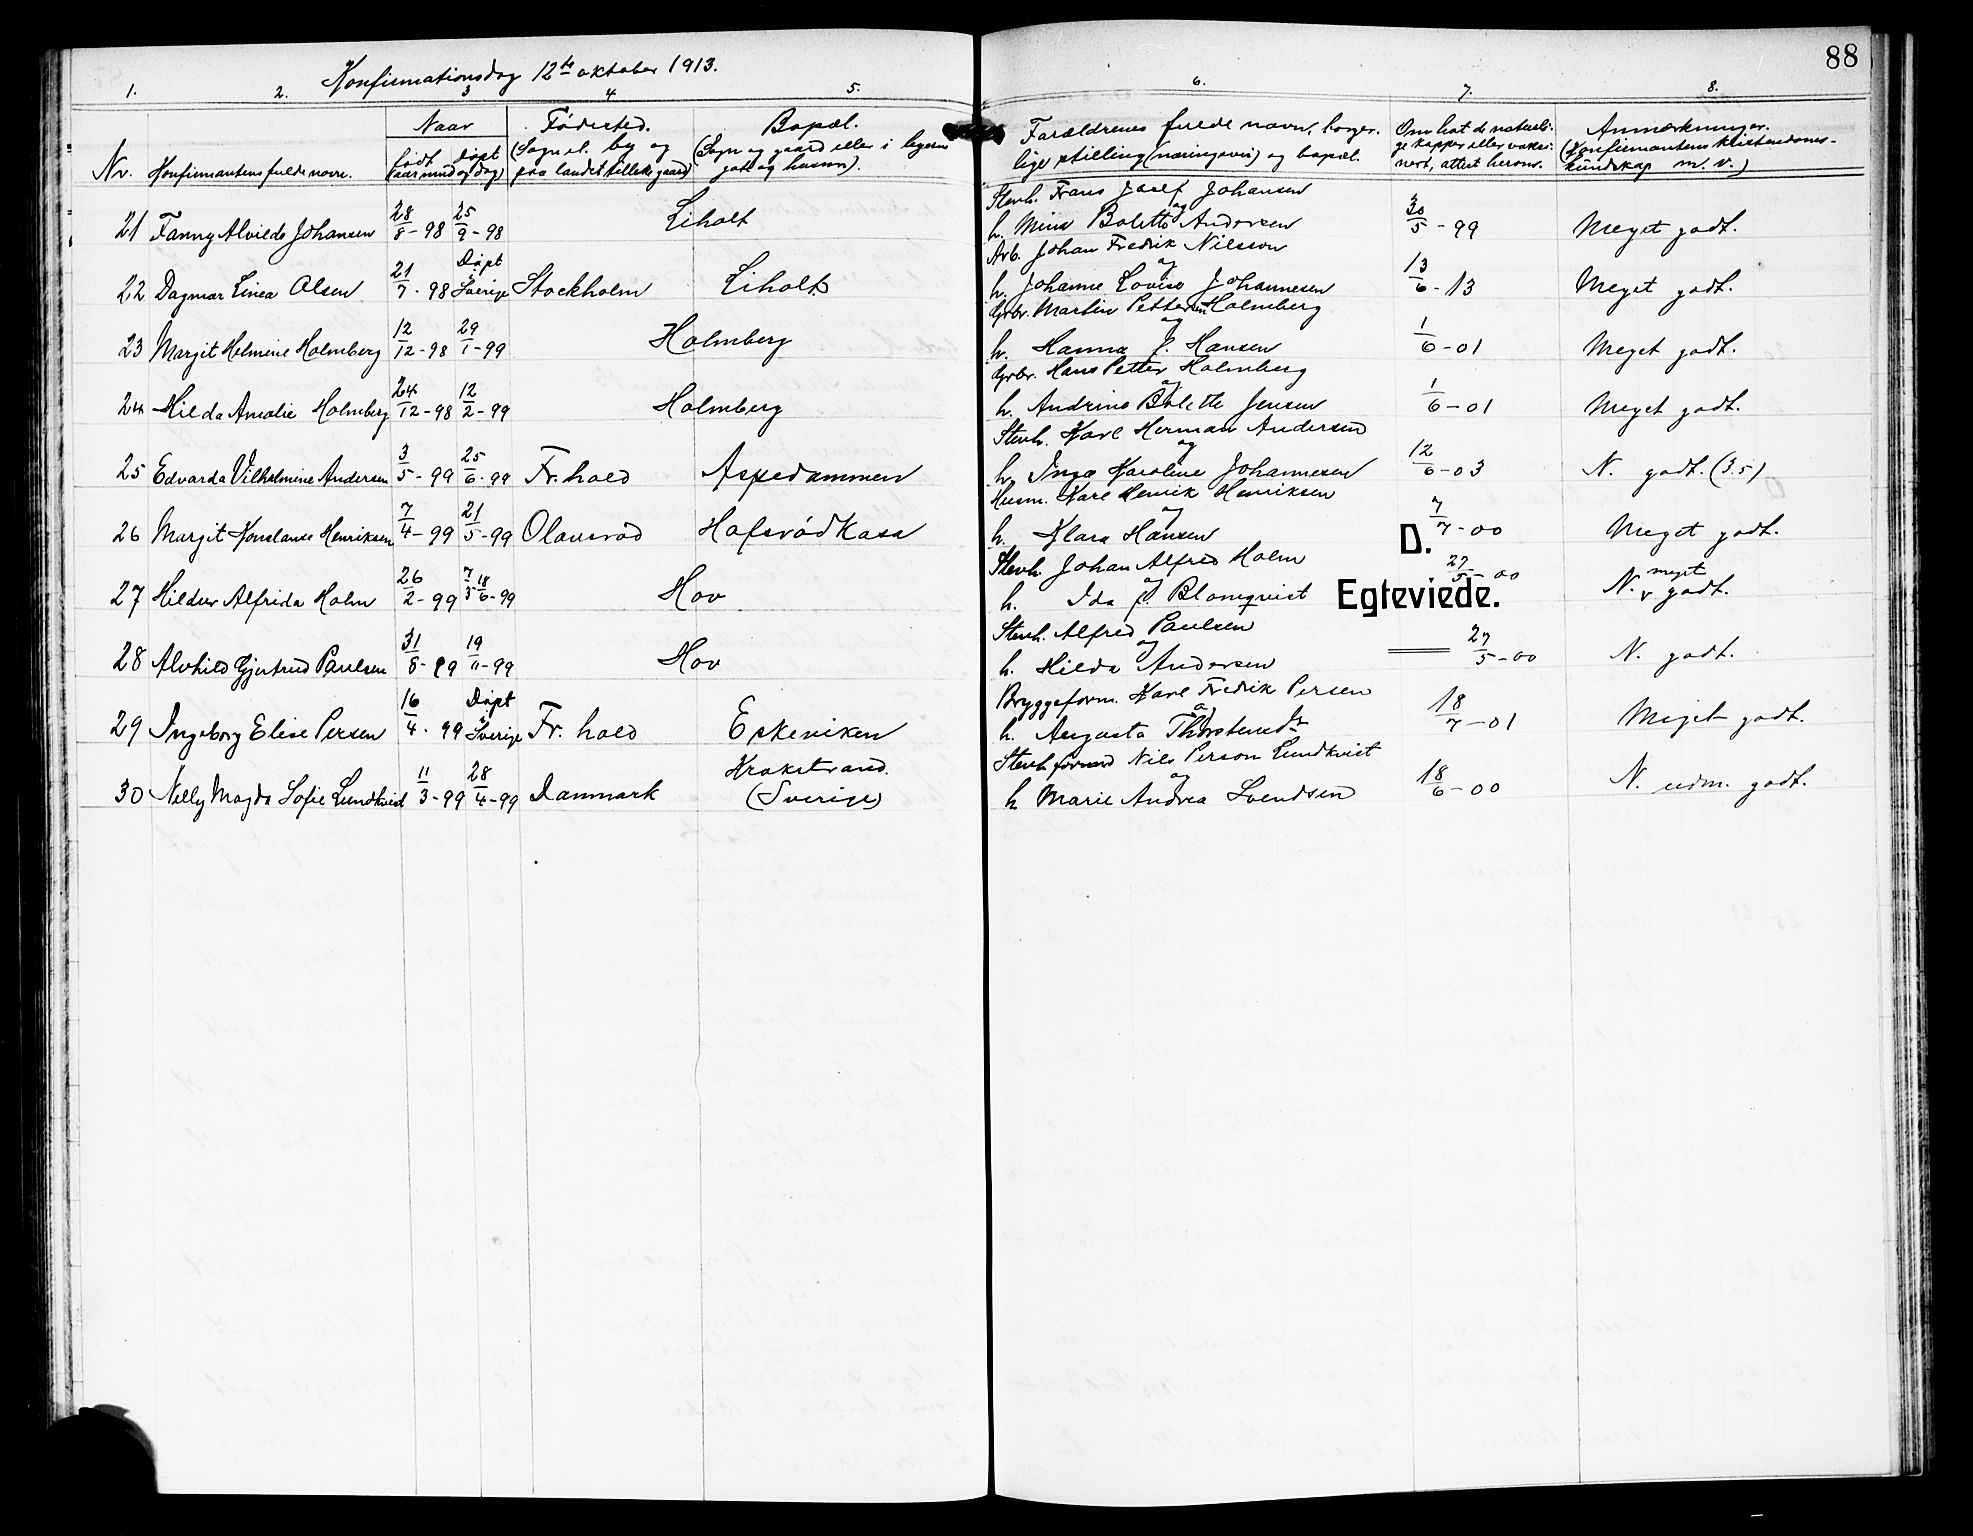 88
Konfirmationsdag 12te oktober 1913.
1. 2. 3 4 5. 6. 7. 8.
Nr. Konfirmantens fulde navn. Naar født døpt (aar mnd og dag) Fødested. (Sogn el. by og paa landet tillike gaard) Bopæl. (Sogn og gaard eller i byerne gate og husnr.) Forældrenes fulde navn, borgerlige stilling (næringsvei) og bopæl. Om hat de naturlige kopper eller vaksinert, attest herom. Anmærkninger. (Konfirmantens kristendomskundskap m. v.)
21 Fanny Alvilde Johansen 28/8-98 25/9-98 Liholt Stenh. Frans Josef Johansen og h. Mina Bolette Andersen 30/5-99 Meget godt.
22 Dagmar Linea Olsen 21/7-98 Døpt i Sverige Stockholm Liholt Arb. Johan Fredrik Nilsson og h. Johanne Lovise Johannesen 13/6-13 Meget godt.
23 Margit Helmine Holmberg 12/12-98 29/1-99 Holmberg Gbr. Martin Pettersen Holmberg og h. Hanna J. Hansen 1/6-01 Meget godt.
24 Hilda Amalie Holmberg 24/12-98 12/2-99 Holmberg Gbr. Hans Petter Holmberg og h. Andrine Bolette Jensen 1/6-01 Meget godt.
25 Edvarda Vilhelmine Andersen 3/5-99 25/6-99 Fr.hald Aspedammen Stenh. Karl Herman Andersen og h. Inga Karoline Johannesen 12/6-03 N. godt. (3.5)
26 Margit Konstanse Henriksen 7/4-99 21/5-99 Olavsrød Hofsrød Kasa Husm. Karl Henrik Henriksen og h. Klara Hansen 7/7-00 Meget godt.
D.
27 Hildur Alfrida Holm 26/2-99 7/5 18/6-99 Hov Stenh. Johan Alfred Holm og h. Ida J. Blomqvist 27/5-00 N. meget godt.
Egteviede.
28 Alvhild Gjertrud Paulsen 31/8-99 19/11-99 Hov Stenh. Alfred Paulsen og h. Hilda Andersen 27/5-00 N. godt.
29 Ingeborg Elise Persen 16/4-99 Døpt i Sverige Fr. hald Eskeviken Bryggeform. Karl Fredrik Persen og h. Augusta 18/7-01 Meget godt.
30 Nelly Magda Sofie Lundkvist 11/3-99 28/4-99 Danmark Krokstrand. (Sverige) Stenh. formand Nils Person Lundkvist og h. Marie Andrea Svendsen 18/6-00 N. udm. godt.